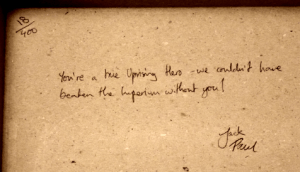 18/400
You're a true Uprising Hero - we couldn't have
beaten the Imperium without you!
Jack
Paul